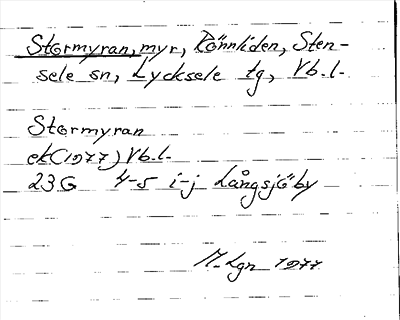 Stormyran, myr, Rönnliden, Sten-
sele sn, Lycksele tg, Vb.l.
Stormyran
ek (1977) Vb.l.
23G 4-5 i-j Långsjöby
M. Lgn 1977